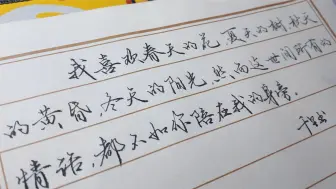 我喜欢春天的花,夏天的树,秋天
的黄昏,冬天的阳光,然而这世间所有的
情话,都不如你陪在我的身旁。